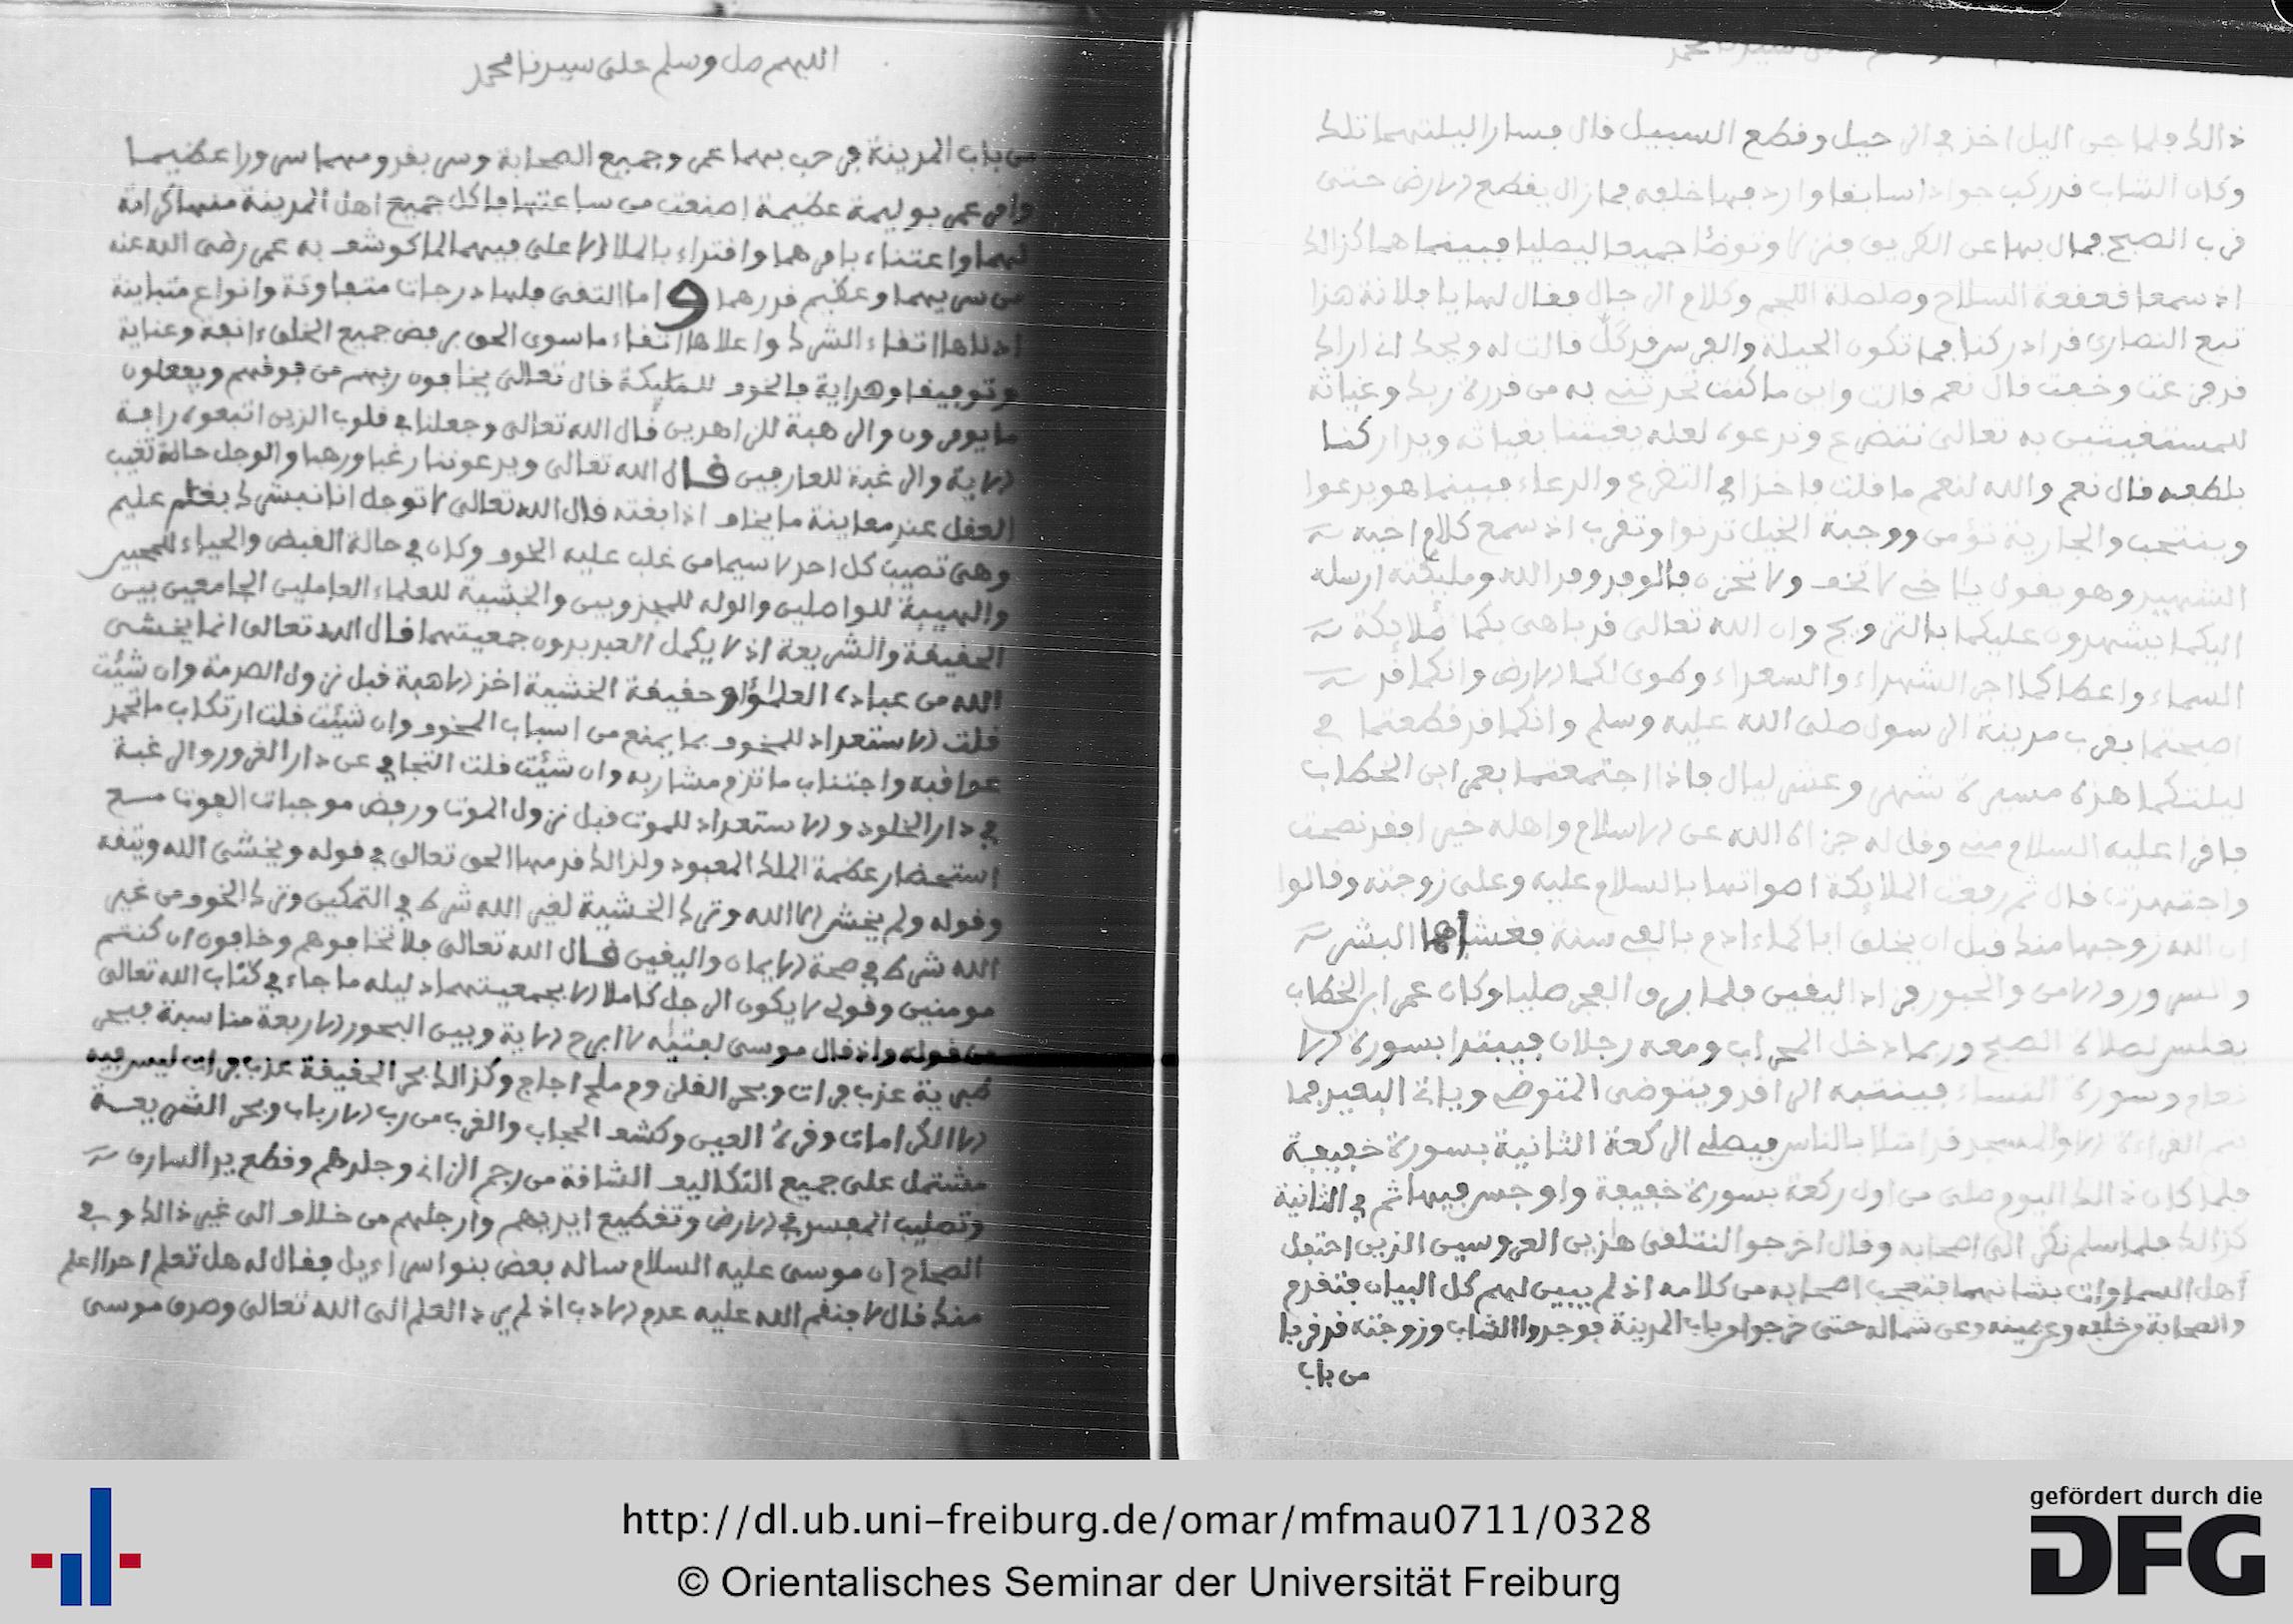 ذالك فلما جن اليل اخذ في الرحيل وقطع السبيل قال فسارا ليلتهما تلك
وكان الشاب قد ركب جوادا سابقا واردفها خلفه فما زال يقطع الارض حتى
قرب الصبح فمال بها عن الطريق فنزلا وتوضئا جميعا ليصليا فبينما هما كذالك
اذ سمعا قعقعة السلاح وصلصلة اللجم وكلام الرجال فقال لها يا فلانة هذا
تبع النصارى قد ادركنا فما تكون الحيلة والفرس قد كلّ قالت له ويحك اني اراك
قد فزعت وخفت قال نعم قالت واين ما كنت تحدثني به من قدرة ربك وغياثه
للمستغيثين به تعالى نتضرع وندعوه لعله يغيثنا بغياثه ويداركنا
بلطفه قال نعم والله لنعم ما قلت فاخذا في التضرع والدعاء فبينما هو يدعوا
وينتحب والجارية تؤمن ووجبة الخيل تدنوا وتقرب اذ سمع كلام اخيه
الشهيد وهو يقول يا اخي لا تخف ولا تحزن فالوفد وفد الله ومليكته ارسله
اليكما يشهدون عليكما بالتزويج وان الله تعالى قد باهى بكما ملائكة
السماء واعطاكما اجر الشهداء والسعداء وطوى لكما الارض وانكما قد
اصبحتما بقرب مدينة الرسول صلى الله عليه وسلم وانكما قد قطعتما في
ليلتكما هذه مسيرة شهر وعشر ليال فاذا اجتمعتما بعمر ابن الخطاب
فاقرا عليه السلام مني وقل له جزاك الله عن الاسلام واهله خيرا فقد نصحت
واجتهدت قال ثم رفعت الملائكة اصواتها بالسلام عليه وعلى زوجته وقالوا
ان الله زوجها منك قبل ان يخلق اباكماء ادم بالفي سنة فغشاهما البشر
والسرور والامن والحبور فزاد اليقين فلما برق الفجر صليا وكان عمر ابن الخطاب
يغلس بصلاة الصبح وربما دخل المحراب ومعه رجلان فيبتدا بسورة الا
نعام وسورة النساء فينتبه الراقد ويتوضى المتوضي وياتي البعيد فما
يتم القراءة الا والمسجد قد امتلا بالناس فيصلي الركعة الثانية بسورة خفيفة
فلما كان ذالك اليوم صلى من اول ركعة بسورة خفيفة واوجس فيها ثم في الثانية
كذالك فلما سلم نظر الى اصحابه وقال اخرجوا لنتلقى هذين العروسين الذين احتفل
أهل السماوات بشانهما فتعجب اصحابه من كلامه اذ لم يبين لهم كل البيان فتقدم
والصحابة وخلفه وعن يمينه وعن شماله حتى خرجوا من باب المدينة فوجدوا الشاب وزوجته قد قربا
من باب
اللهم صل وسلم على سيدنا محمد
من باب المدينة فرحب بهما عمر وجميع الصحابة وسر بقدومهما سرورا عظيما
وامر عمر بوليمة عظيمة اصنعت من ساعتها فاكل جميع اهل المدينة منها كرامة
لهما واعتناء بامرهما واقتداء بالملا الاعلى فيهما لما كوشف به عمر رضي الله عنه
من سريهما وعظيم قدرهما واما التقى فلها درجات متفاوتة وانواع متباينة
ادناها اتقاء الشرك واعلاها اتقاء ما سوى الحق برفض جميع الخلق ءانفة وعناية
وتوفيقا وهداية فالخوف للمليكة قال تعالى يخافون ربهم من فوقهم ويفعلون
ما يومرون والرهبة للزاهدين قال الله تعالى وجعلنا في قلوب الذين اتبعوه رافة
الاية والرغبة للعارفين قال الله تعالى ويدعوننا رغبا ورهبا والوجل حالة تغيب
العقل عند معاينة ما يخاف اذا بغته قال الله تعالى لا توجل انا نبشرك بغلم عليم
وهي تصيب كل احد لا سيما من غلب عليه الخوف وكان في حالة القبض والحياء للمحبين
والهيبة للواصلين والوله للمجذوبين والخشية للعلماء العاملين الجامعين بين
الحقيقة والشريعة اذ لا يكمل العبد بدون جمعيتهما قال الله تعالى انما يخشى
الله من عباده العلمؤا وحقيقة الخشية اخذ الاهبة قبل نزول الصدمة وان شئت
قلت الاستعداد للمخوف بما يمنع من اسباب المخوف وان شئت قلت ارتكاب ما تحمد
عواقبه واجتناب ما تذم مشاربه وان شئت قلت التجافي عن دار الغرور والرغبة
في دار الخلود والاستعداد للموت قبل نزول الموت ورفض موجبات الفوت مع
استحضار عظمة الملك المعبود ولذالك قدمها الحق تعالى في قوله ويخشى الله ويتقه
وقوله ولم يخش الا الله وترك الخشية لغير الله شرط في التمكين وترك الخوف من غير
الله شرط في صحة الايمان واليقين قال الله تعالى فلا تخافوهم وخافون ان كنتم
مومنين وقولي لا يكون الرجل كاملا الا بجمعيتهما دليله ما جاء في كتاب الله تعالى
من قوله واذ قال موسى لفتيه لا ابرح الاية وبين البحور الاربعة مناسبة فبحر
طبرية عذب فرات وبحر القلزوم ملح اجاج وكذالك بحر الحقيقة عذب فرات ليس فيه
الا الكرامات وقرة العين وكشف الحجاب والقرب من رب الارباب وبحر الشريعة
مشتمل على جميع التكاليف الشاقة من رجم الزاني وجلدهم وقطع يد السارق
وتصليب المفسد في الارض وتقطيع ايديهم وارجلهم من خلاف الى غير ذالك وفي
الصحاح ان موسى عليه السلام ساله بعض بنوا اسراءيل فقال له هل تعلم احدا اعلم
منك قال لا فنقم الله عليه عدم الادب اذ لم يرد العلم الى الله تعالى وصدق موسى
http://dl.ub.uni-freiburg.de/omar/mfmau0711/0328
© Orientalisches Seminar der Universität Freiburg
gefördert durch die
DFG